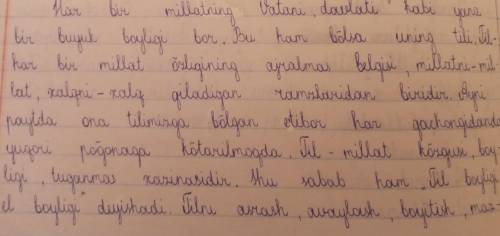 Har bir millatning Vatani, davlati kabi yana
bir buyuk boyligi bor. Bu ham bõlsa uning tili. Til-
har bir millat õzligining ajralmas belgisi, millatni-mil-
lat, xalqni-xalq qiladigan ramzlaridan biridir. Ayni
paytda ona tilimizga bõlgan etibor har qachongidanda
yuqori pog̃onaga kõtarilmoqda. Til - millat kõzgusi, boy-
ligi, tuganmas xazinasidir. Shu sabab ham Til boyligi
el boyligi deyishadi. Tilni asrash, avaylash, boyitish, maz-